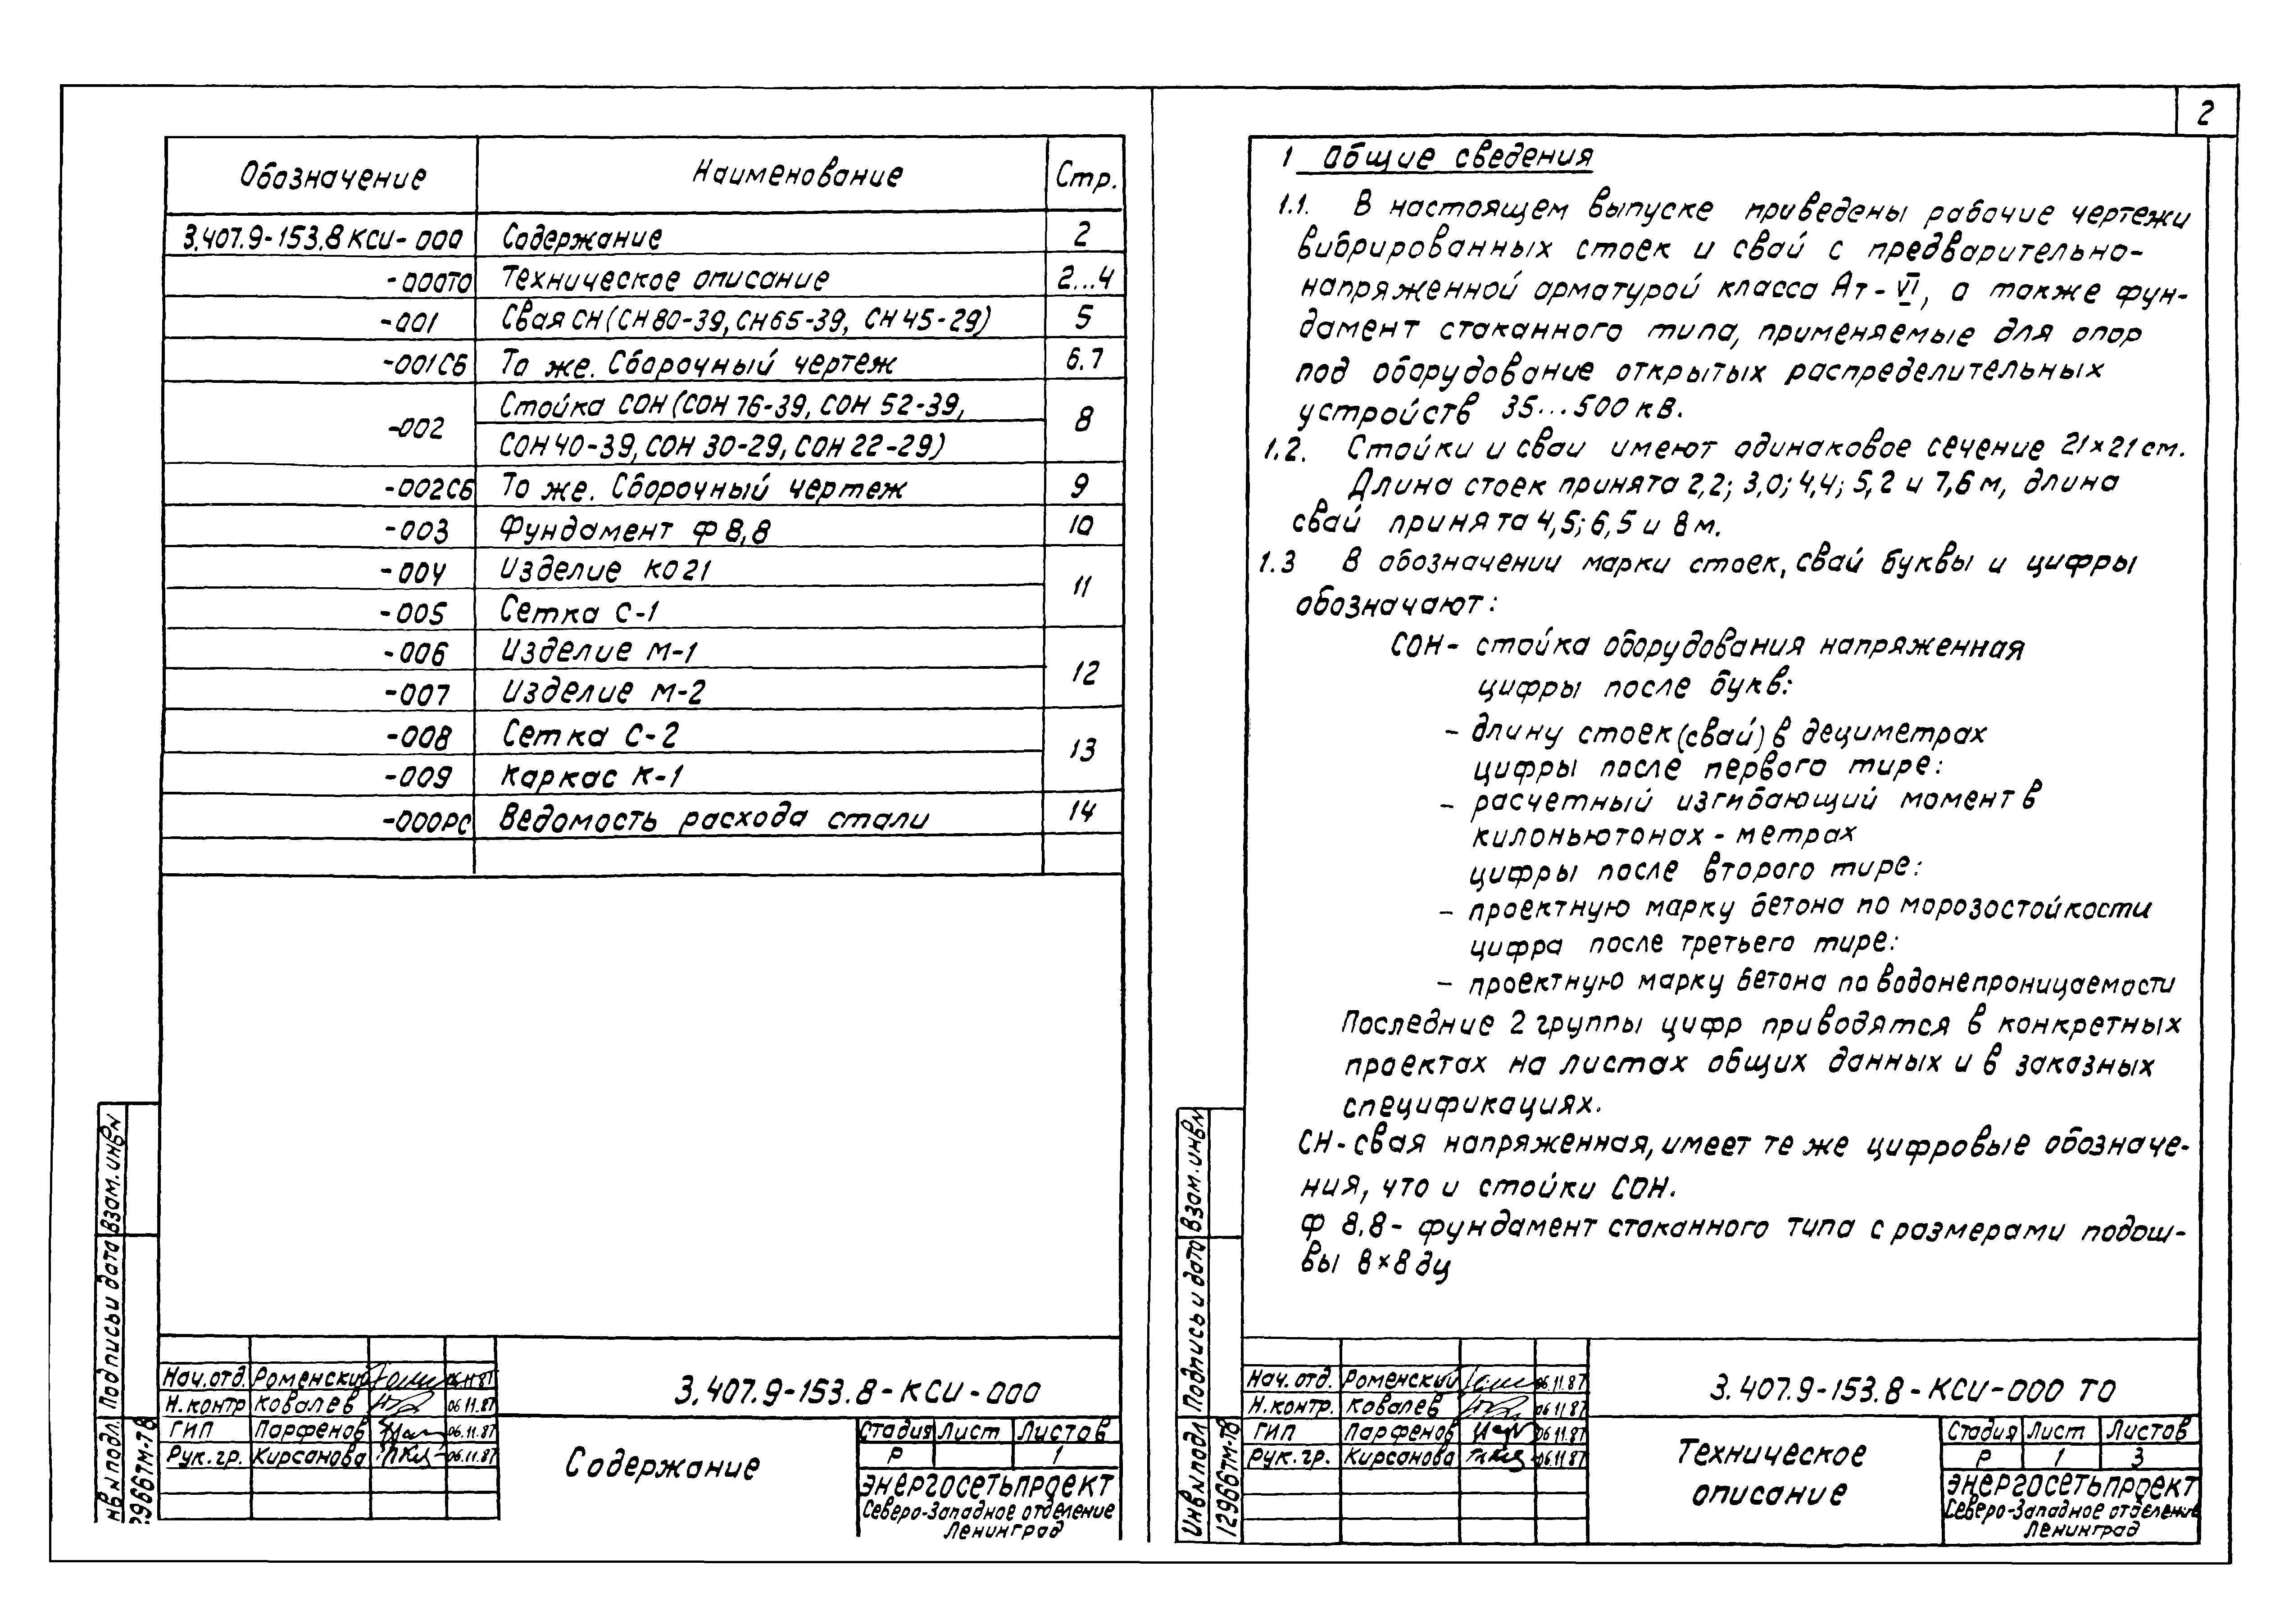 2
Обозначение Наименование Стр.
3.407.9-153.8 КСИ-000 Содержание 2
-000ТО Техническое описание 2...4
-001 Свая СН (СН 80-39, СН 65-39, СН 45-29) 5
-001СБ То же. Сборочный чертеж 6.7
-002 Стойка СОН (СОН 76-39, СОН 52-39, 8
СОН 40-39, СОН 30-29, СОН 22-29)
-002СБ То же. Сборочный чертеж 9
-003 Фундамент Ф 8,8 10
-004 Изделие КО21 11
-005 Сетка С-1
-006 Изделие М-1 12
-007 Изделие М-2
-008 Сетка С-2 13
-009 Каркас К-1
-000РС Ведомость расхода стали 14
Взам. инв N
Подпись и дата
нв N подл.
2966ТМ-Т8
Нач. отд. Роменский 06.11.87
Н. контр Ковалев 06.11.87
ГИП Парфенов 06.11.87
Рук. гр. Кирсанова 06.11.87
3.407.9-153.8-КСИ-000
Содержание
Стадия Лист Листов
Р 1
ЭНЕРГОСЕТЬПРОЕКТ
Северо-Западное отделение
Ленинград
1 Общие сведения
1.1. В настоящем выпуске приведены рабочие чертежи
вибрированных стоек и свай с предварительно-
напряженной арматурой класса Ат-VI, а также фун-
дамент стаканного типа, применяемые для опор
под оборудование открытых распределительных
устройств 35...500 кв.
1.2. Стойки и сваи имеют одинаковое сечение 21×21 см.
Длина стоек принята 2,2; 3,0; 4,4; 5,2 и 7,6 м, длина
свай принята 4,5; 6,5 и 8 м.
1.3 В обозначении марки стоек, свай буквы и цифры
обозначают:
СОН- стойка оборудования напряженная
цифры после букв:
- длину стоек (свай) в дециметрах
цифры после первого тире:
- расчетный изгибающий момент в
килоньютонах-метрах
цифры после второго тире:
- проектную марку бетона по морозостойкости
цифра после третьего тире:
- проектную марку бетона по водонепроницаемости
Последние 2 группы цифр приводятся в конкретных
проектах на листах общих данных и в заказных
спецификациях.
СН- свая напряженная, имеет те же цифровые обозначе-
ния, что и стойки СОН.
Ф 8.8- фундамент стаканного типа с размерами подош-
вы 8×8 дц
Взам. инв N
Подпись и дата
Инв N подл
12966ТМ-Т8
Нач. отд. Роменский 06.11.87
Н. контр. Ковалев 06.11.87
ГИП Парфенов 06.11.87
Рук. гр. Кирсанова 06.11.87
3.407.9-153.8-КСИ-000 ТО
Техническое
описание
Стадия Лист Листов
Р 1 3
ЭНЕРГОСЕТЬПРОЕКТ
Северо-Западное отделение
Ленинград